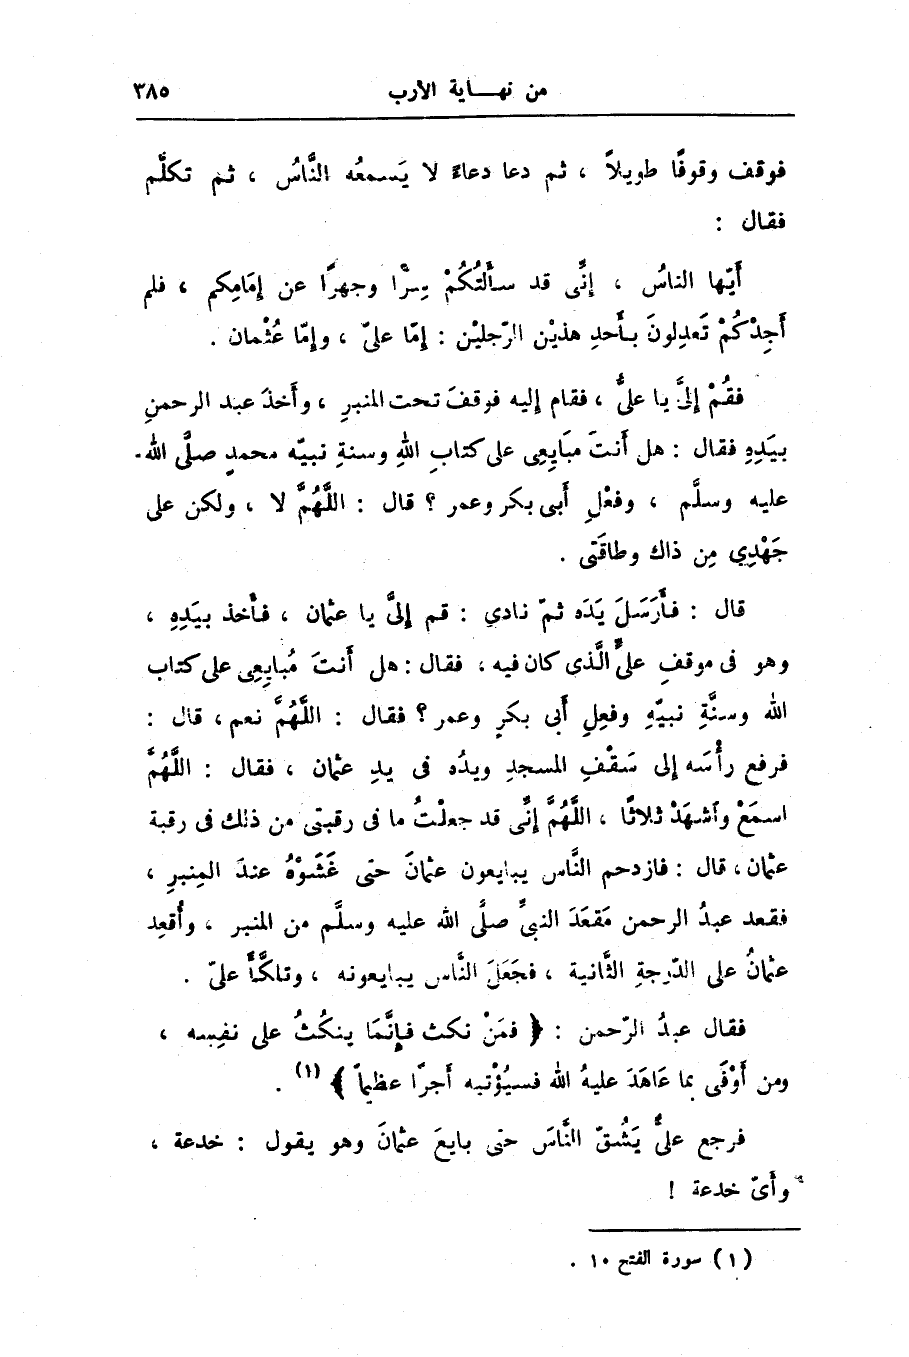 من نهــاية الأرب ٣٨٥
فوقف وقوفًا طويلاً ، ثم دعا دعاءً لا يَسمعُه النَّاسُ ، ثم تكلَّم
فقال :
أَيّها الناسُ ، إنِّى قد سألتُكُمْ سِرًّا وجهرًا عن إمَامِكم ، فلم
أَجِدْكُمْ تَعدِلونَ بأَحدِ هذيْن الرّجليْن : إمّا علىّ ، وإمّا عُثْمان .
فقُمْ إلىَّ يا علىُّ ، فقام إليه فوقفَ تحت المنبرِ ، وأَخذَ عبد الرحمنِ
بيَدِهِ فقال : هل أَنتَ مبَايِعِى على كتابِ اللهِ وسنةِ نبيّه محمدٍ صلَّى الله
عليه وسلَّم ، وفعْلِ أَبى بكر وعمر ؟ قال : اللَّهُمَّ لا ، ولكن على
جَهْدِي مِن ذاك وطاقَتى .
قال : فأَرَسَلَ يَدَه ثمّ نادي : قم إلىَّ يا عثمان ، فأَخذ بيَدِهِ ،
وهو فى موقفِ علىٍّ الَّذى كان فيه ، فقال : هل أَنتَ مُبايِعِى على كتاب
الله وسنَّةِ نبيّهِ وفعلِ أَبى بكرٍ وعمر ؟ فقال : اللَّهُمَّ نعم ، قال :
فرفع رأْسَه إلى سَقْفِ المسجدِ ويدُه فى يدِ عثمان ، فقال : اللَّهُمَّ
اسمَعْ واَشهَدْ ثلاثًا ، اللَّهُمَّ إنِّى قد جعلْتُ ما فى رقبتى من ذلك فى رقبة
عثمان ، قال : فازدحم النَّاس يبايعون عثمانَ حتى غَشَوْهُ عندَ المِنبرِ ،
فقعد عبدُ الرحمن مَقعَدَ النبىِّ صلَّى الله عليه وسلَّم من المنبر ، وأُقعِد
عثمانُ على الدّرجةِ الثَّانية ، فجَعَلَ النَّاس يبايعونه ، وتلكَّأَ علىّ .
فقال عبدُ الرّحمن : ﴿ فمَنْ نكث فإنَّمَا ينكُثُ على نفسِه ،
ومن أَوْفَى بما عَاهَدَ عليهُ الله فسيُؤْتيه أَجرًا عظيماً ﴾ (١) .
فرجع علىٌّ يَشُقّ النَّاسَ حتى بايعَ عثمانَ وهو يقول : خدعة ،
وأَىّ خدعة !
(١) سورة الفتح ١٠ .